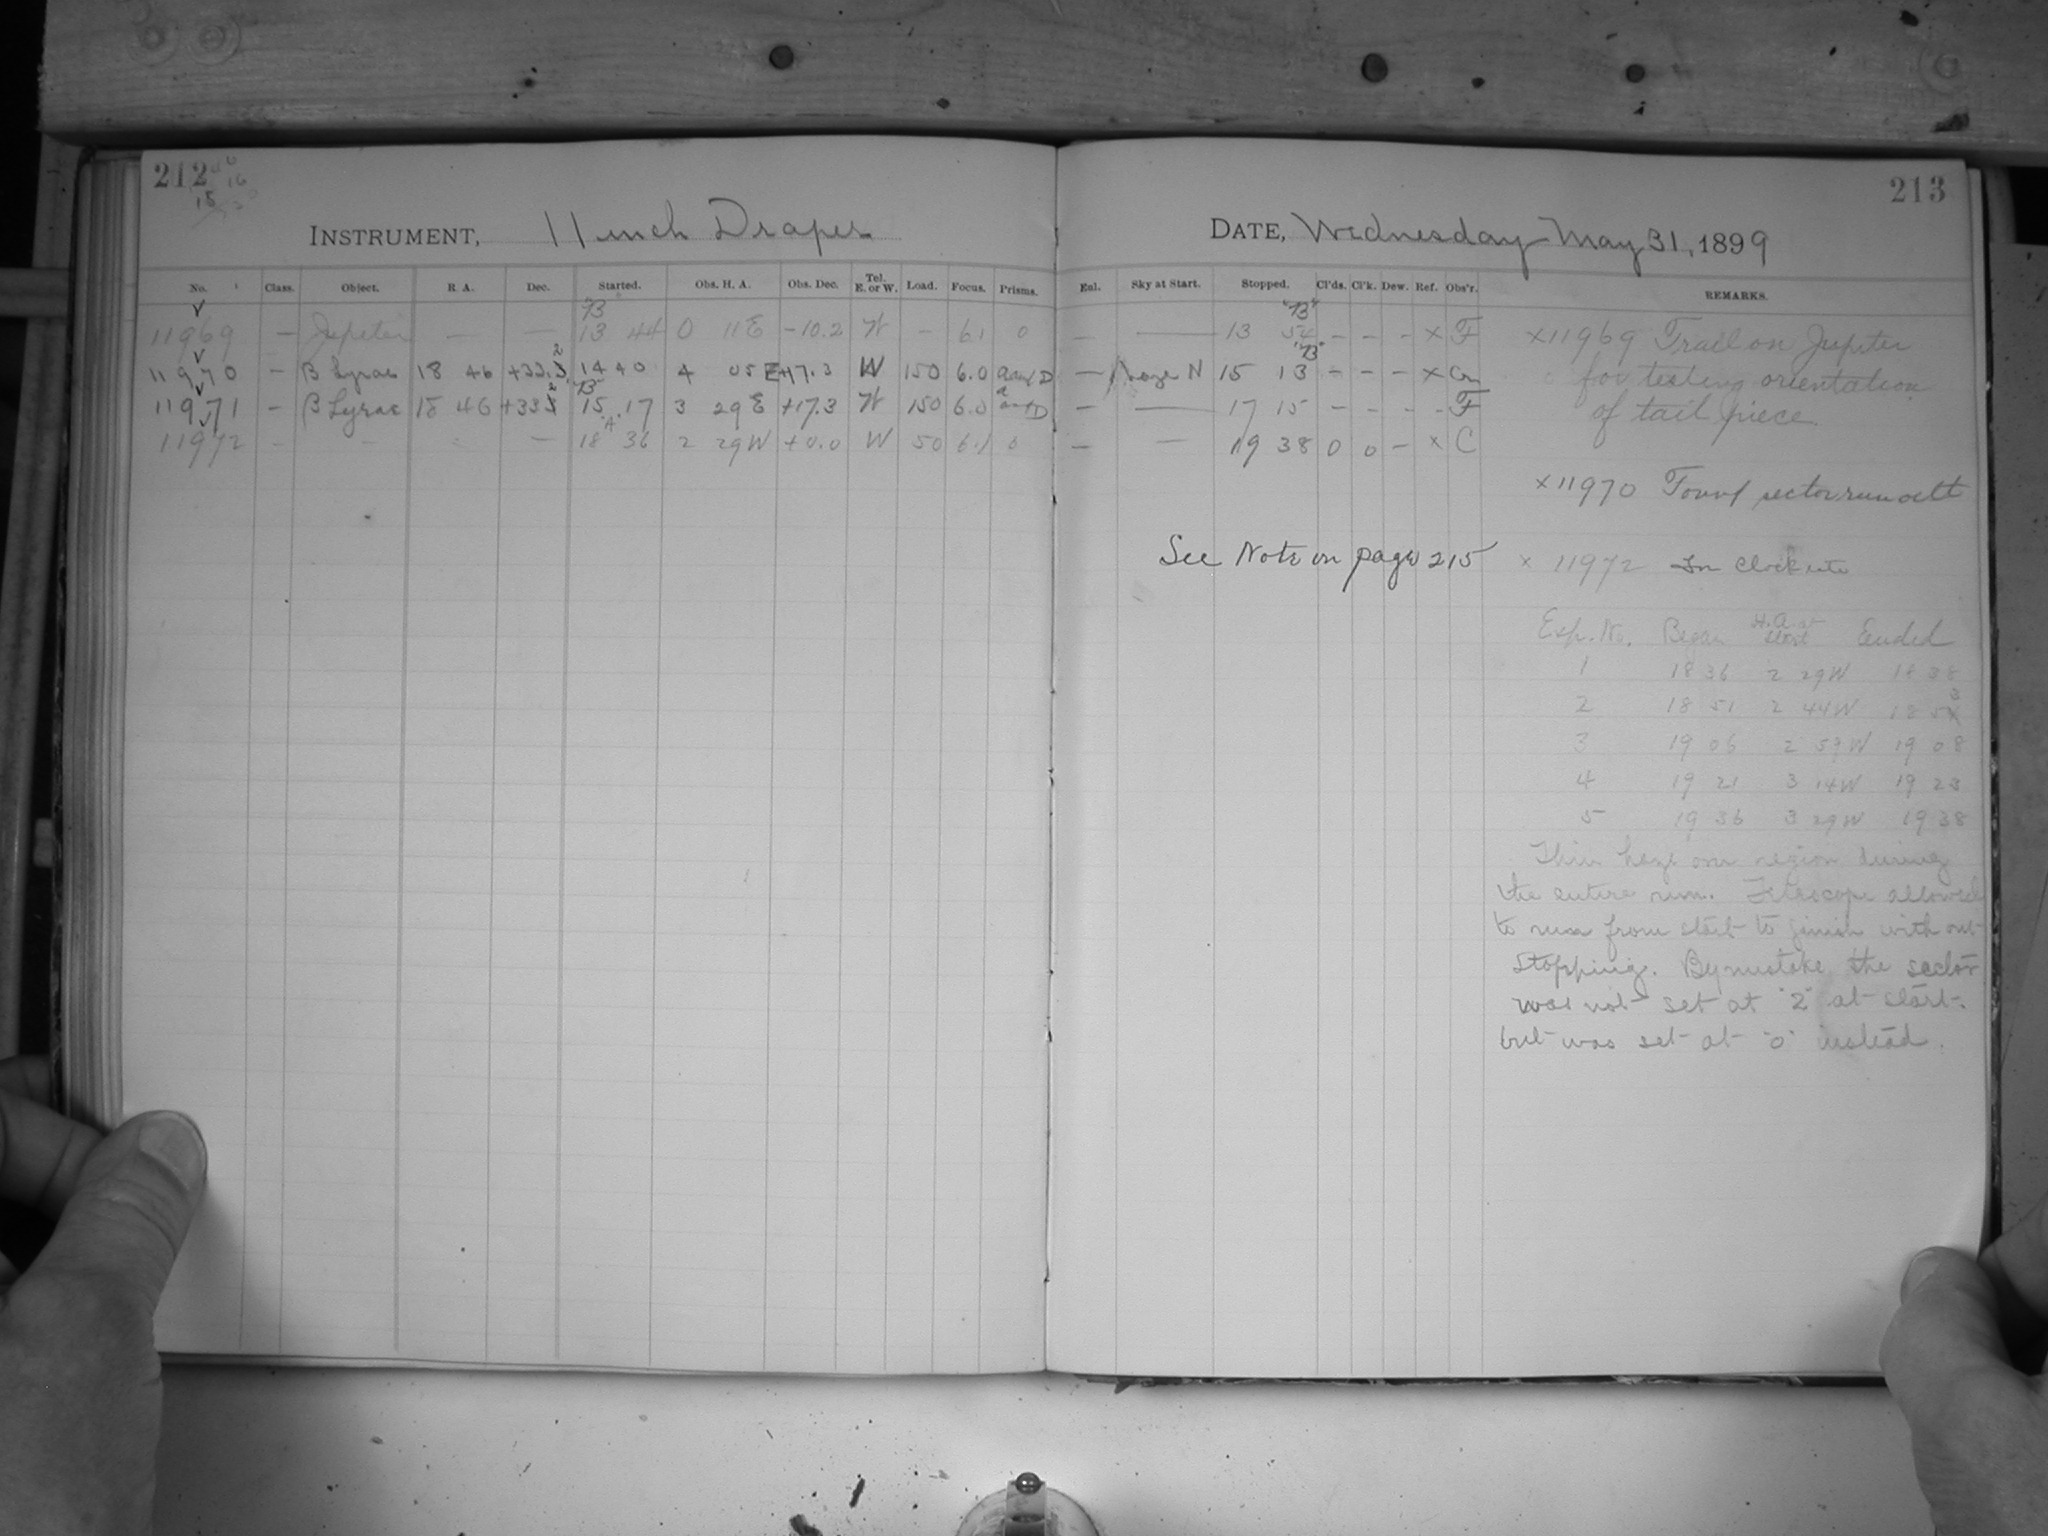 212
213
INSTRUMENT, 11 inch Draper
DATE, Wednesday May 31, 1899
No. Class. Object. R A. Dec. Started. Obs. H. A. Obs. Dec. Tel. E. or W. Load. Focus. Prisms. Enl. Sky at Start. Stopped. Cl'ds. Cl'k. Dew. Ref. Obs'r. REMARKS.
"B" "B"
11969 — Jupiter — — 13 44 0 11 E -10.2 W — 6.1 0 — — 13 54 - - - x F
"B"
11970 - β Lyrae 18 46 +33.2 14 40 4 05 E +17.3 W 150 6.0 — haze N 15 13 - - - x
"B"
11971 - β Lyrae 18 46 +33.2 15 17 3 29 E +17.3 W 150 6.0 — — 17 15 - - - - F
"A"
11972 - - - — 18 36 2 29 W +0.0 W 50 6.1 0 — — 19 38 0 0 - x C
x11969 Trail on Jupiter
for testing orientation
of tail piece.
x11970 Found sector run out
See Note on page 215
x 11972 In Clock
Exp. No. Began H.A. at Start Ended
1 18 36 2 29 W 18 38
2 18 51 2 44 W 18 53
3 19 06 2 59 W 19 08
4 19 21 3 14 W 19 23
5 19 36 3 29 W 19 38
Thin haze over region during
the entire run. Telescope allowed
to run from start to finish with out
stopping. By mistake the sector
was not set at "2" at start
but was set at "0" instead.